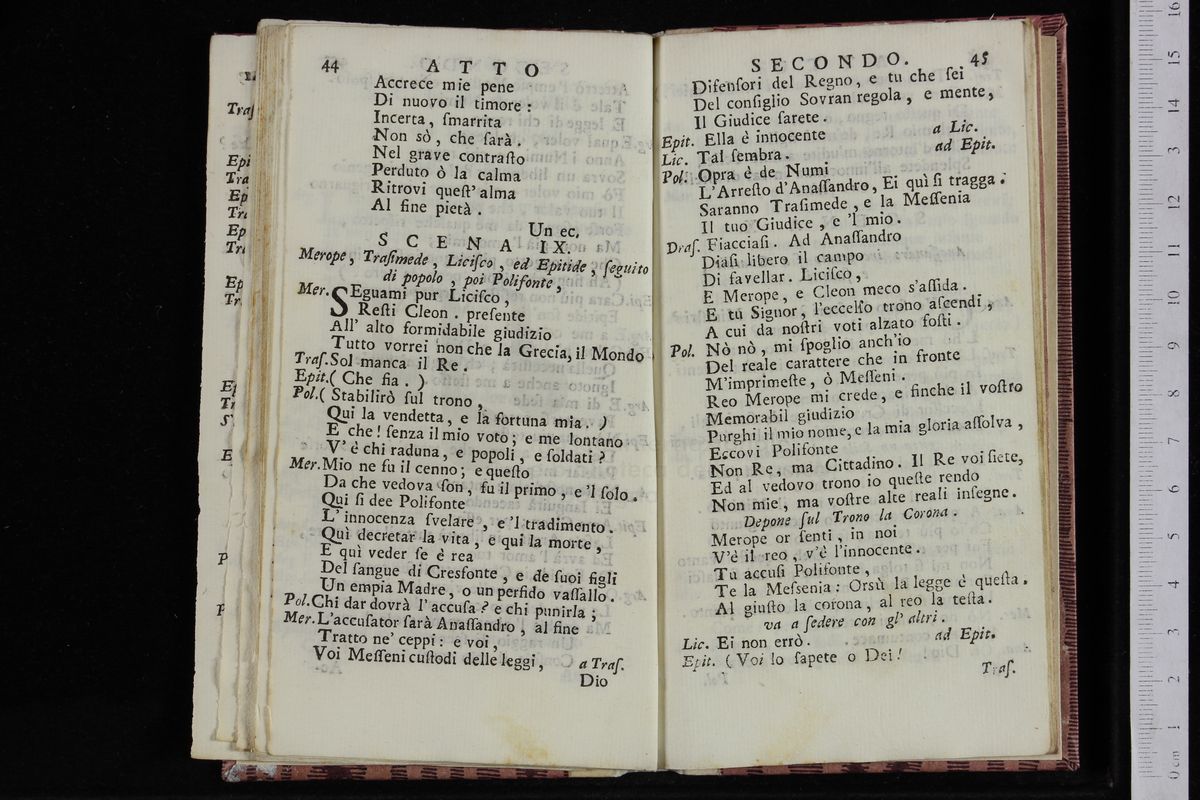 44 ATTO
Accrece mie pene
Di nuovo il timore :
Incerta, ſmarrita
Non sò, che ſarà.
Nel grave contraſto
Perduto ò la calma
Ritrovi queſt' alma
Al fine pietà.
Un ec.
SCENA IX.
Merope, Traſimede, Liciſco, ed Epitide, ſeguito
di popolo, poi Polifonte,
Mer. SEguami pur Liciſco,
Reſti Cleon. preſente
All' alto formidabile giudizio
Tutto vorrei non che la Grecia, il Mondo
Traſ. Sol manca il Re.
Epit. ( Che fia. )
Pol. ( Stabilirò ſul trono,
Qui la vendetta, e la fortuna mia. )
E che! ſenza il mio voto; e me lontano
V' è chi raduna, e popoli, e ſoldati?
Mer. Mio ne fu il cenno; e queſto
Da che vedova ſon, fu il primo, e 'l ſolo.
Qui ſi dee Polifonte
L' innocenza ſvelare, e 'l tradimento.
Quì decretar la vita, e qui la morte,
E quì veder ſe è rea
Del ſangue di Cresfonte, e de ſuoi figli
Un empia Madre, o un perfido vaſſallo.
Pol. Chi dar dovrà l' accuſa? e chi punirla;
Mer. L'accuſator ſarà Anaſſandro, al fine
Tratto ne' ceppi : e voi,
Voi Meſſeni cuſtodi delle leggi, a Traſ.
Dio
SECONDO. 45
Difenſori del Regno, e tu che ſei
Del conſiglio Sovran regola, e mente,
Il Giudice ſarete.
Epit. Ella è innocente a Lic.
Lic. Tal ſembra. ad Epit.
Pol. Opra è de Numi
L'Arreſto d'Anaſſandro, Ei quì ſi tragga.
Saranno Traſimede, e la Meſſenia
Il tuo Giudice, e 'l mio.
Draſ. Fiacciaſi. Ad Anaſſandro
Diaſi libero il campo
Di favellar. Liciſco,
E Merope, e Cleon meco s'aſſida.
E tu Signor, l'eccelſo trono aſcendi,
A cui da noſtri voti alzato foſti.
Pol. Nò nò, mi ſpoglio anch'io
Del reale carattere che in fronte
M'imprimeſte, ò Meſſeni.
Reo Merope mi crede, e finche il voſtro
Memorabil giudizio
Purghi il mio nome, e la mia gloria aſſolva,
Eccovi Polifonte
Non Re, ma Cittadino. Il Re voi ſiete,
Ed al vedovo trono io queſte rendo
Non mie, ma voſtre alte reali inſegne.
Depone ſul Trono la Corona.
Merope or ſenti, in noi
V'è il reo, v'è l'innocente.
Tu accuſi Polifonte,
Te la Meſsenia : Orsù la legge è queſta.
Al giuſto la corona, al reo la teſta.
va a ſedere con gl' altri.
Lic. Ei non errò. ad Epit.
Epit. ( Voi lo ſapete o Dei!
Traſ.